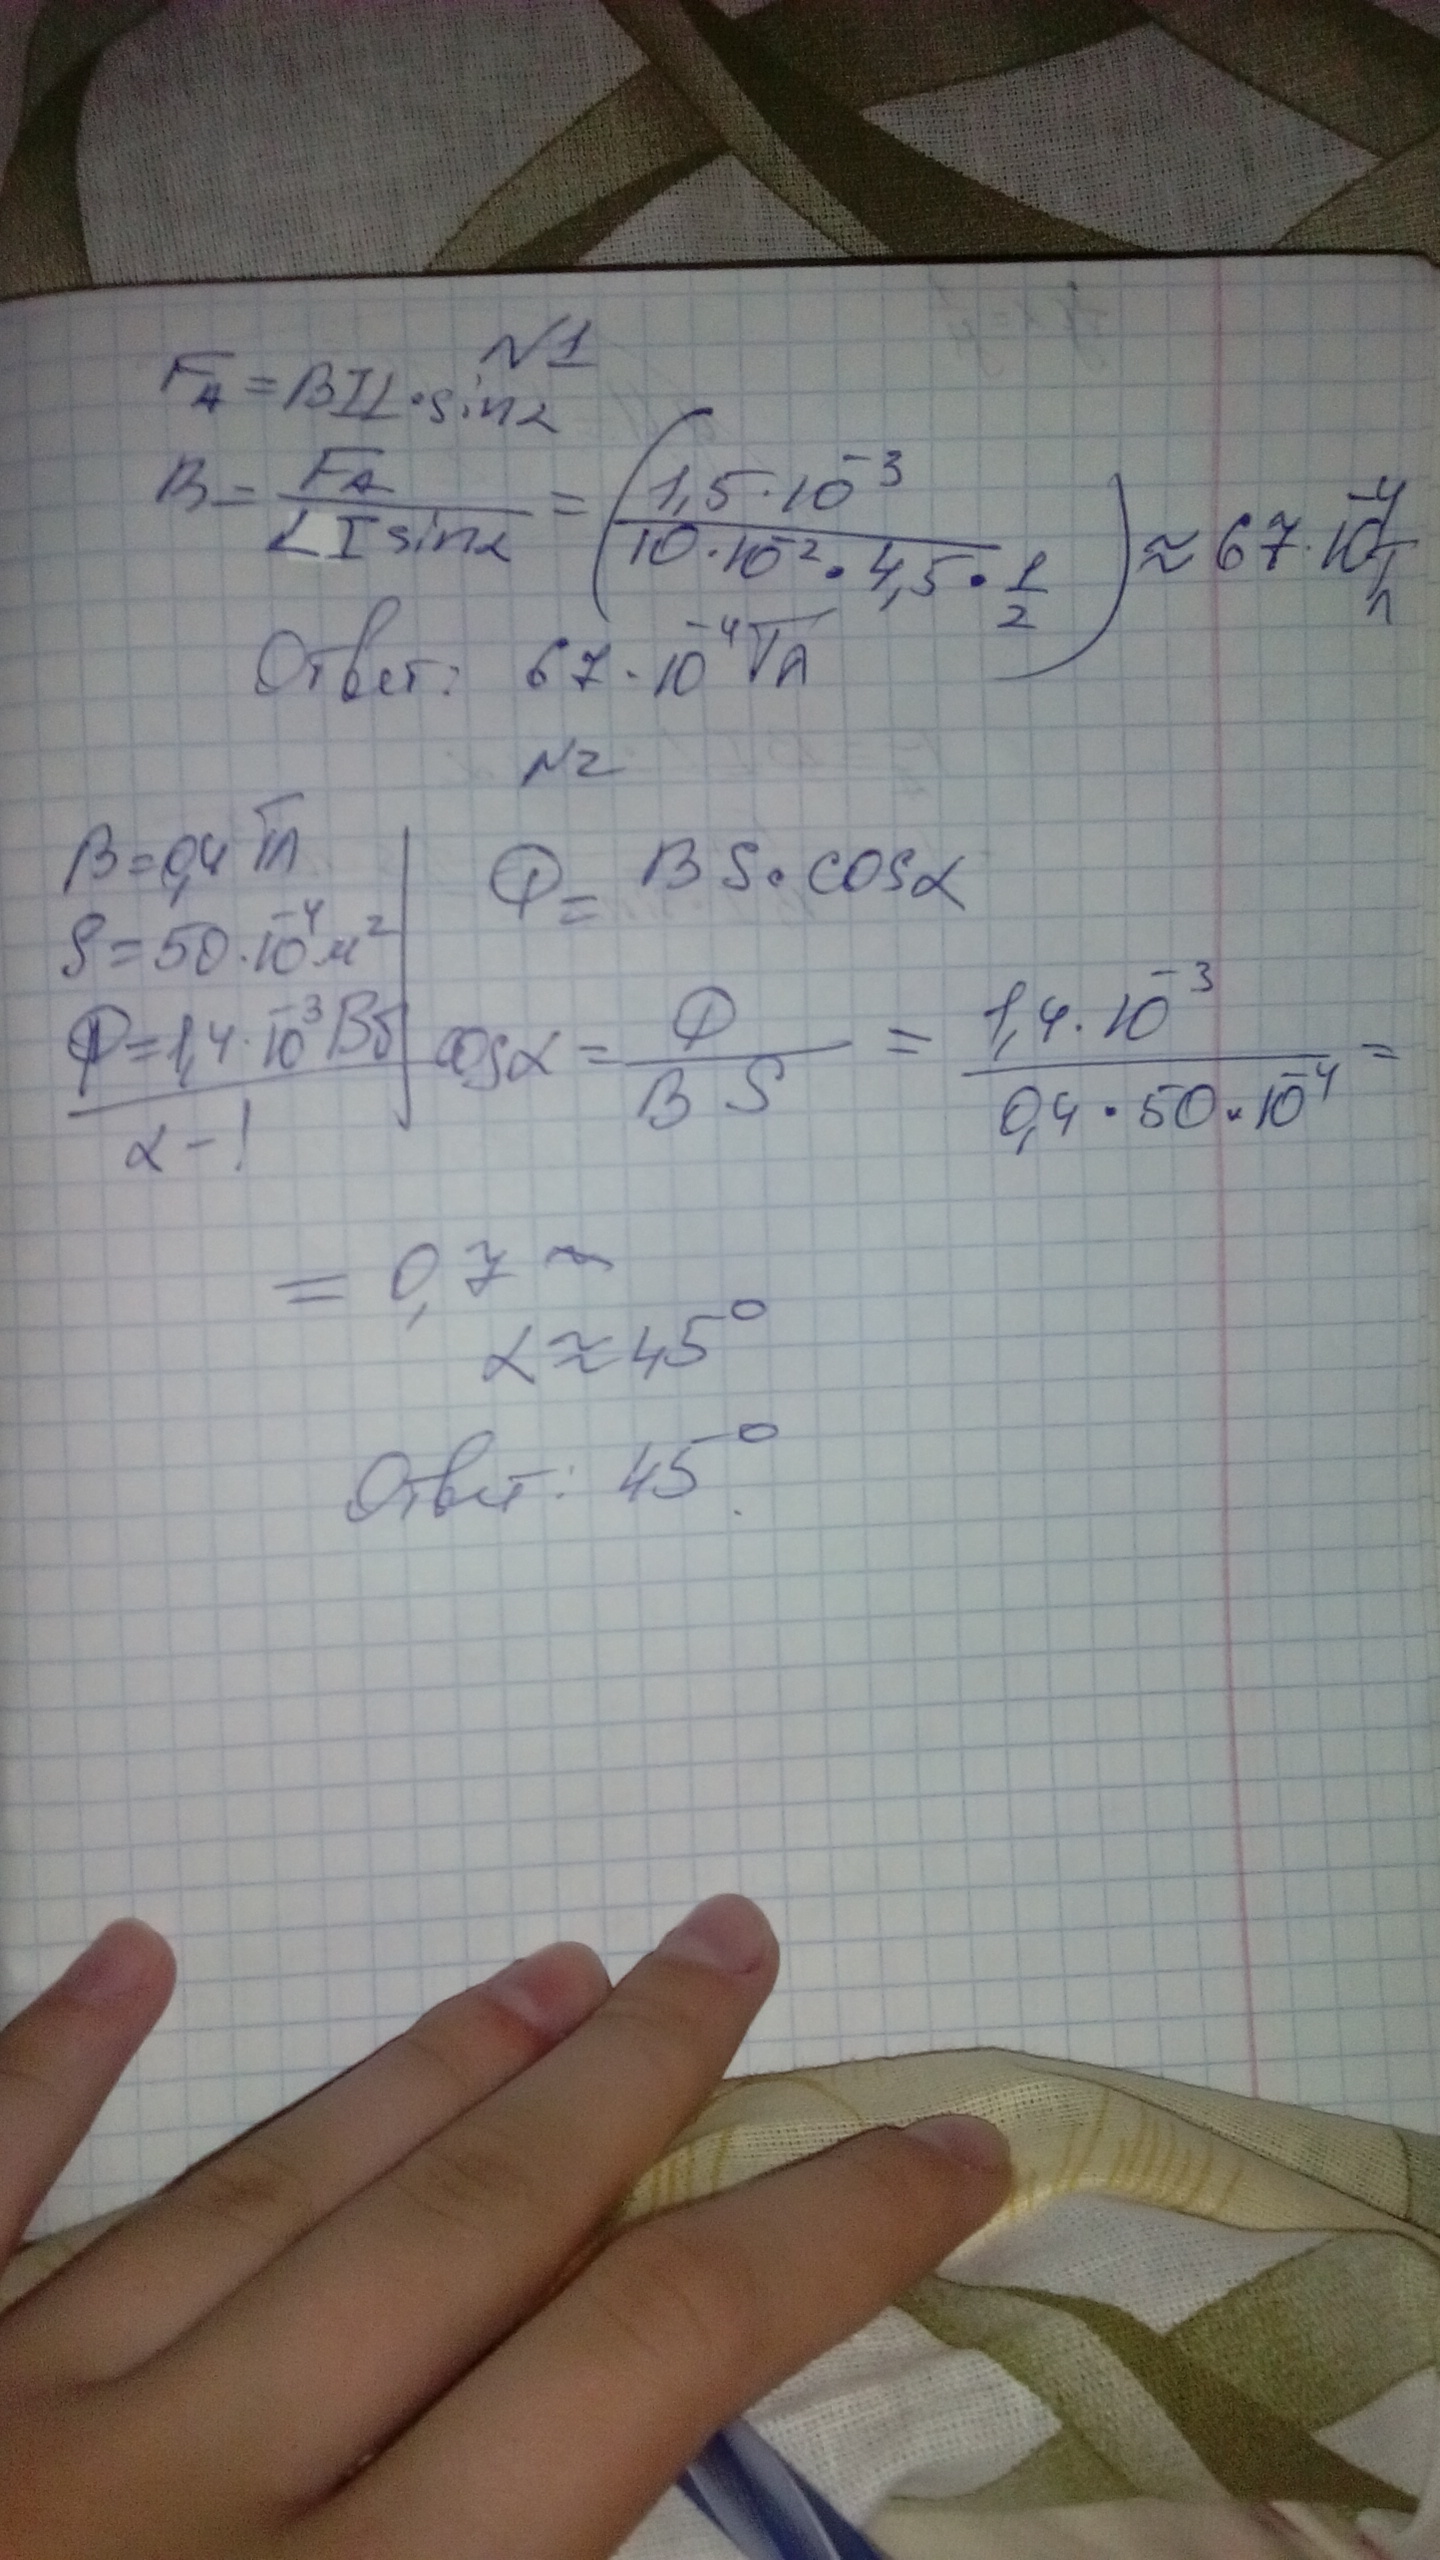 №1
F_A = BIL · sin α
B = F_A / (L I sin α) = (1,5 · 10^-3 / 10 · 10^-2 · 4,5 · 1/2) ≈ 67 · 10^-4 Тл
Ответ: 67 · 10^-4 Тл
№2
B = 0,4 Тл
S = 50 · 10^-4 м^2
Ф = 1,4 · 10^-3 Вб
α - !
Ф = B S · cos α
cos α = Ф / B S = 1,4 · 10^-3 / 0,4 · 50 · 10^-4 =
= 0,7 ~
α ≈ 45°
Ответ: 45°.